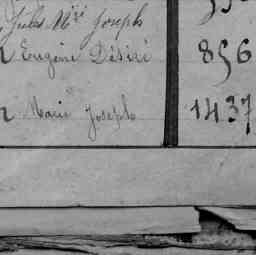 Jules Nas Joseph
Eugène Désiré 856
Marie Joseph 1437